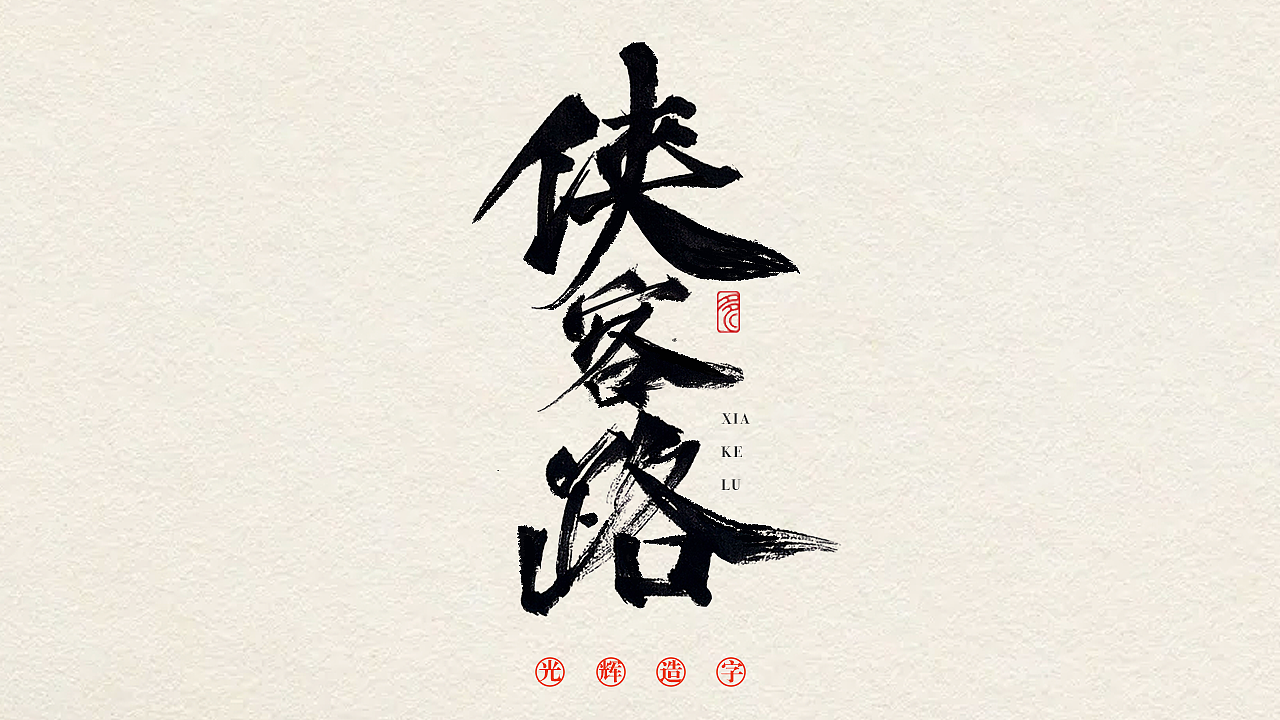 侠客路
XIA
KE
LU
光辉造字